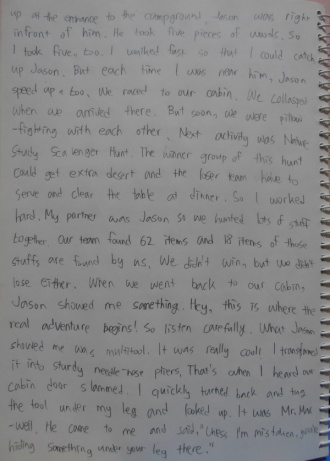 up at the entrance to the campground, Jason was right
infront of him. He took five pieces of woods. So
I took five, too. I walked fast so that I could catch
up Jason. But each time I was near him, Jason
speed up, too. We raced to our cabin. We collapsed
when we arrived there. But soon, we were pillow
-fighting with each other. Next activity was Nature
Study Scavenger Hunt. The winner group of this hunt
could get extra desert and the loser team have to
serve and clear the table at dinner. So I worked
hard. My partner was Jason so we hunted lots of stuff
together. Our team found 62 items and 18 items of those
stuffs are found by us. We didn't win, but we didn't
lose either. When we went back to our cabin,
Jason showed me something. Hey, this is where the
real adventure begins! So listen carefully. What Jason
showed me was multitool. It was really cool! I transformed
it into sturdy needle-nose pliers. That's when I heard our
cabin door slammed. I quickly turned back and
the tool under my leg and looked up. It was Mr. Max
-well. He came to me and said, "Unless I'm mistaken, you're
hiding something under your leg there."